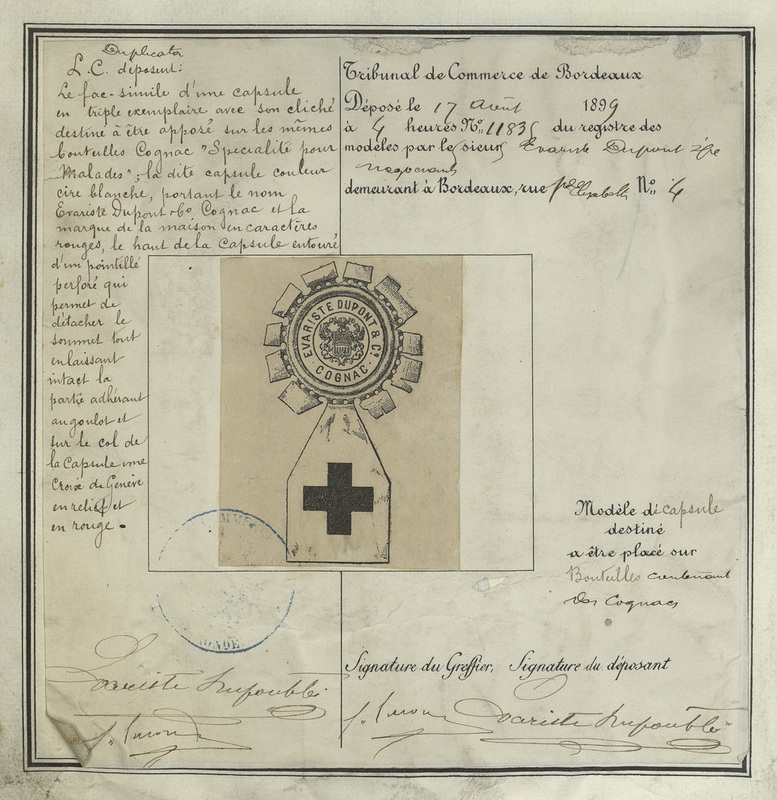 Duplicata
L.C. déposent:
Le fac-simile d'une capsule
en triple exemplaire avec son cliché
destiné à être apposé sur les mêmes
bouteilles Cognac "Spécialité pour
Malades"; la dite capsule couleur
cire blanche, portant le nom
Evariste Dupont & Co Cognac et la
marque de la maison en caractères
rouges, le haut de la capsule entouré
d'un pointillé
perforé qui
permet de
détacher le
sommet tout
en laissant
intact la
partie adhérant
au goulot et
sur le col de
la Capsule une
Croix de Genève
en relief et
en rouge.
Tribunal de Commerce de Bordeaux
Déposé le 17 Août 1899
à 4 heures No. 1183 du registre des
modèles par le sieur Evariste Dupont
négociant
demeurant à Bordeaux, rue No. 4
EVARISTE DUPONT & Co
COGNAC
Modèle de capsule
destiné
a être placé sur
Bouteilles contenant
des Cognacs
Signature du Greffier, Signature du déposant